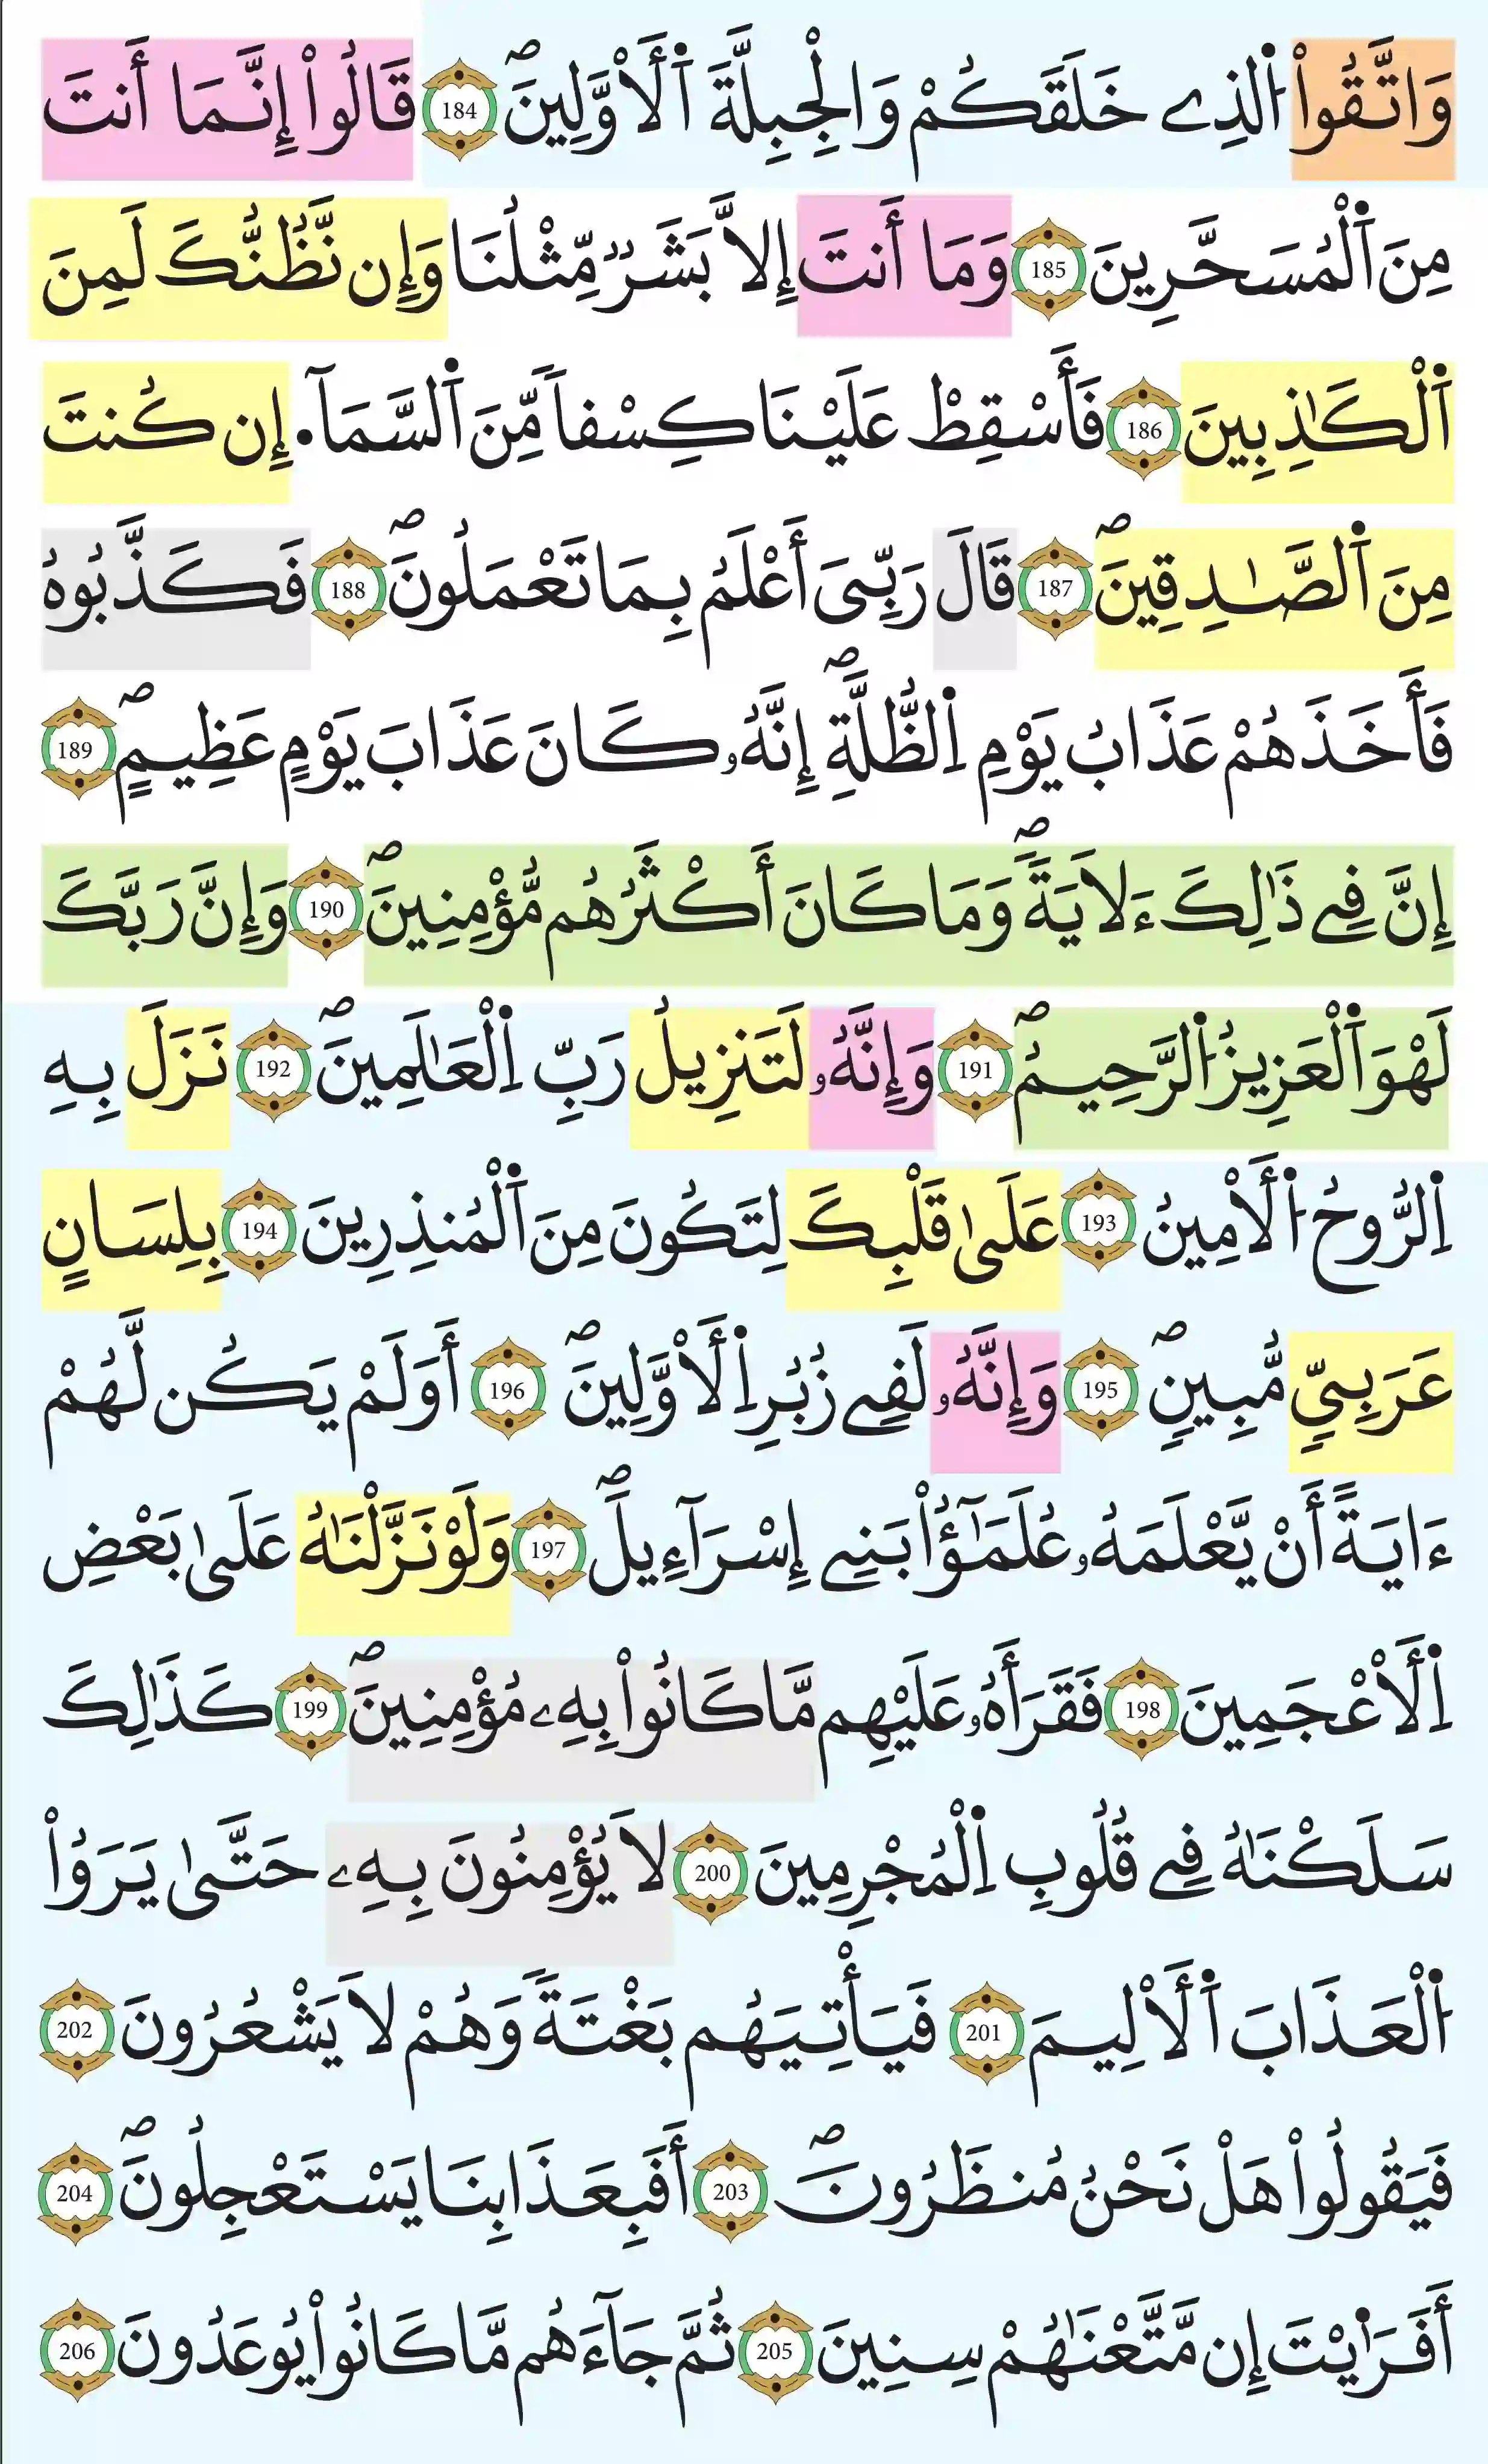 وَاتَّقُواْ اُ۬لذِے خَلَقَكُمْ وَالْجِبِلَّةَ اَ۬لَاوَّلِينَۖ 184 قَالُواْ إِنَّمَا أَنتَ
مِنَ اَ۬لْمُسَحَّرِينَ 185 وَمَا أَنتَ إِلاَّ بَشَرٞ مِّثْلُنَا وَإِن نَّظُنُّكَ لَمِنَ
اَ۬لْكَٰذِبِينَ 186 فَأَسْقِطْ عَلَيْنَا كِسْفاٗ مِّنَ اَ۬لسَّمَآءِ۬ ان كُنتَ
مِنَ اَ۬لصَّٰدِقِينَۖ 187 قَالَ رَبِّيَ أَعْلَمُ بِمَا تَعْمَلُونَۖ 188 فَكَذَّبُوهُ
فَأَخَذَهُمْ عَذَابُ يَوْمِ اِ۬لظُّلَّةِۖ إِنَّهُۥ كَانَ عَذَابَ يَوْمٍ عَظِيمٍۖ 189
إِنَّ فِے ذَٰلِكَ ءَلَايَةٗۖ وَمَا كَانَ أَكْثَرُهُم مُّؤْمِنِينَۖ 190 وَإِنَّ رَبَّكَ
لَهْوَ اَ۬لْعَزِيزُ اُ۬لرَّحِيمُۖ 191 وَإِنَّهُۥ لَتَنزِيلُ رَبِّ اِ۬لْعَٰلَمِينَۖ 192 نَزَلَ بِهِ
اِ۬لرُّوحُ اُ۬لَامِينُ 193 عَلَىٰ قَلْبِكَ لِتَكُونَ مِنَ اَ۬لْمُنذِرِينَ 194 بِلِسَانٍ
عَرَبِيّٖ مُّبِينٖۖ 195 وَإِنَّهُۥ لَفِے زُبُرِ اِ۬لَاوَّلِينَۖ 196 أَوَلَمْ يَكُن لَّهُمْ
ءَايَةً أَنْ يَّعْلَمَهُۥ عُلَمَٰٓؤُاْ بَنِے إِسْرَآءِيلَۖ 197 وَلَوْ نَزَّلْنَٰهُ عَلَىٰ بَعْضِ
اِ۬لَاعْجَمِينَ 198 فَقَرَأَهُۥ عَلَيْهِم مَّا كَانُواْ بِهِۦ مُؤْمِنِينَۖ 199 كَذَٰلِكَ
سَلَكْنَٰهُ فِے قُلُوبِ اِ۬لْمُجْرِمِينَ 200 لَا يُؤْمِنُونَ بِهِۦ حَتَّىٰ يَرَوُاْ
اُ۬لْعَذَابَ اَ۬لَالِيمَ 201 فَيَأْتِيَهُم بَغْتَةٗ وَهُمْ لَا يَشْعُرُونَ 202
فَيَقُولُواْ هَلْ نَحْنُ مُنظَرُونَۖ 203 أَفَبِعَذَابِنَا يَسْتَعْجِلُونَۖ 204
أَفَرَٰيْتَ إِن مَّتَّعْنَٰهُمْ سِنِينَ 205 ثُمَّ جَآءَهُم مَّا كَانُواْ يُوعَدُونَ 206